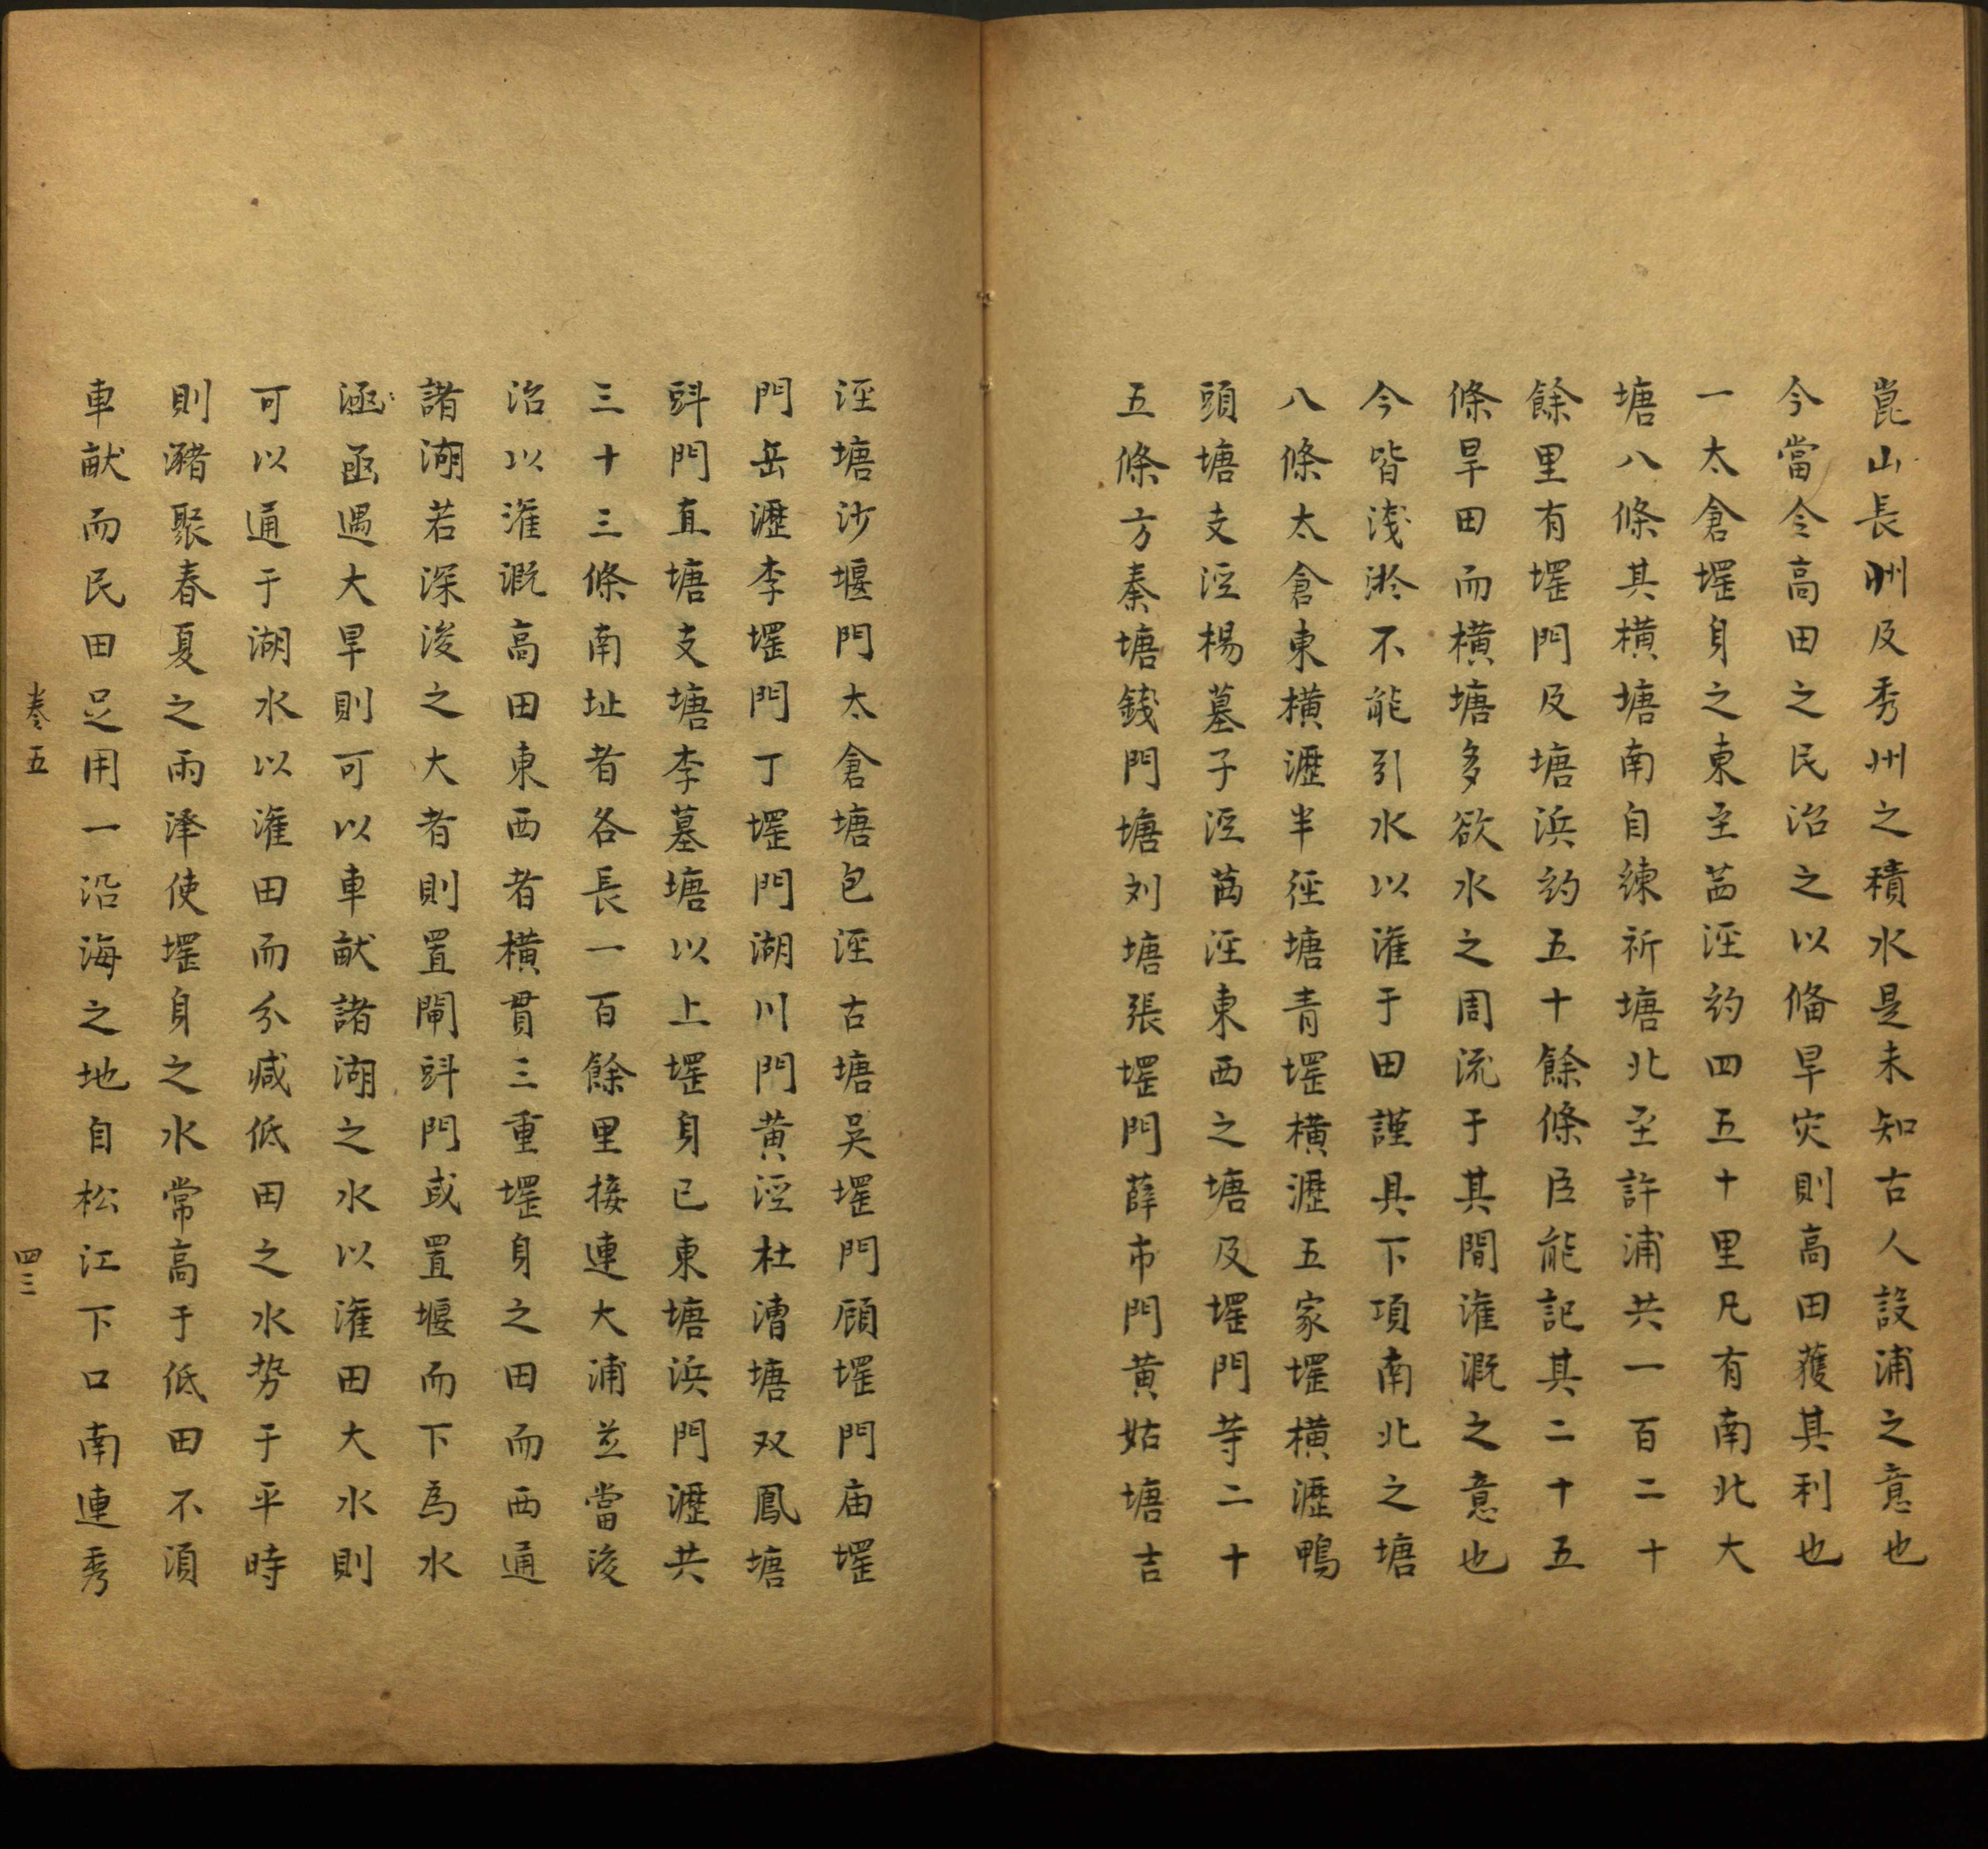 崑山長洲及秀州之積水是未知古人設浦之意也
今當令高田之民治之以備旱灾則高田獲其利也
一太倉堽身之東至茜涇約四五十里凡有南北大
塘八條其橫塘南自練祈塘北至許浦共一百二十
餘里有堽門及塘浜約五十餘條臣能記其二十五
條旱田而橫塘多欲水之周流于其間潅溉之意也
今皆淺淤不能引水以潅于田謹具下項南北之塘
八條太倉東橫瀝半徑塘青堽橫瀝五家堽橫瀝鴨
頭塘支涇楊墓子涇茜涇東西之塘及堽門䓁二十
五條方秦塘錢門塘刘塘張堽門薛市門黄姑塘吉
涇塘沙堰門太倉塘包涇古塘吴堽門顧堽門庙堽
門岳瀝李堽門丁堽門湖川門黄涇杜漕塘双鳳塘
㪷門直塘支塘李墓塘以上堽身已東塘浜門瀝共
三十三條南址者各長一百餘里接連大浦並當浚
治以潅溉高田東西者橫貫三重堽身之田而西通
諸湖若深浚之大者則置閘㪷門或置堰而下為水
涵凾遇大旱則可以車畎諸湖之水以潅田大水則
可以通于湖水以潅田而分减低田之水势于平時
則瀦聚春夏之雨泽使堽身之水常高于低田不須
車畎而民田足用一沿海之地自松江下口南連秀
卷五
四三